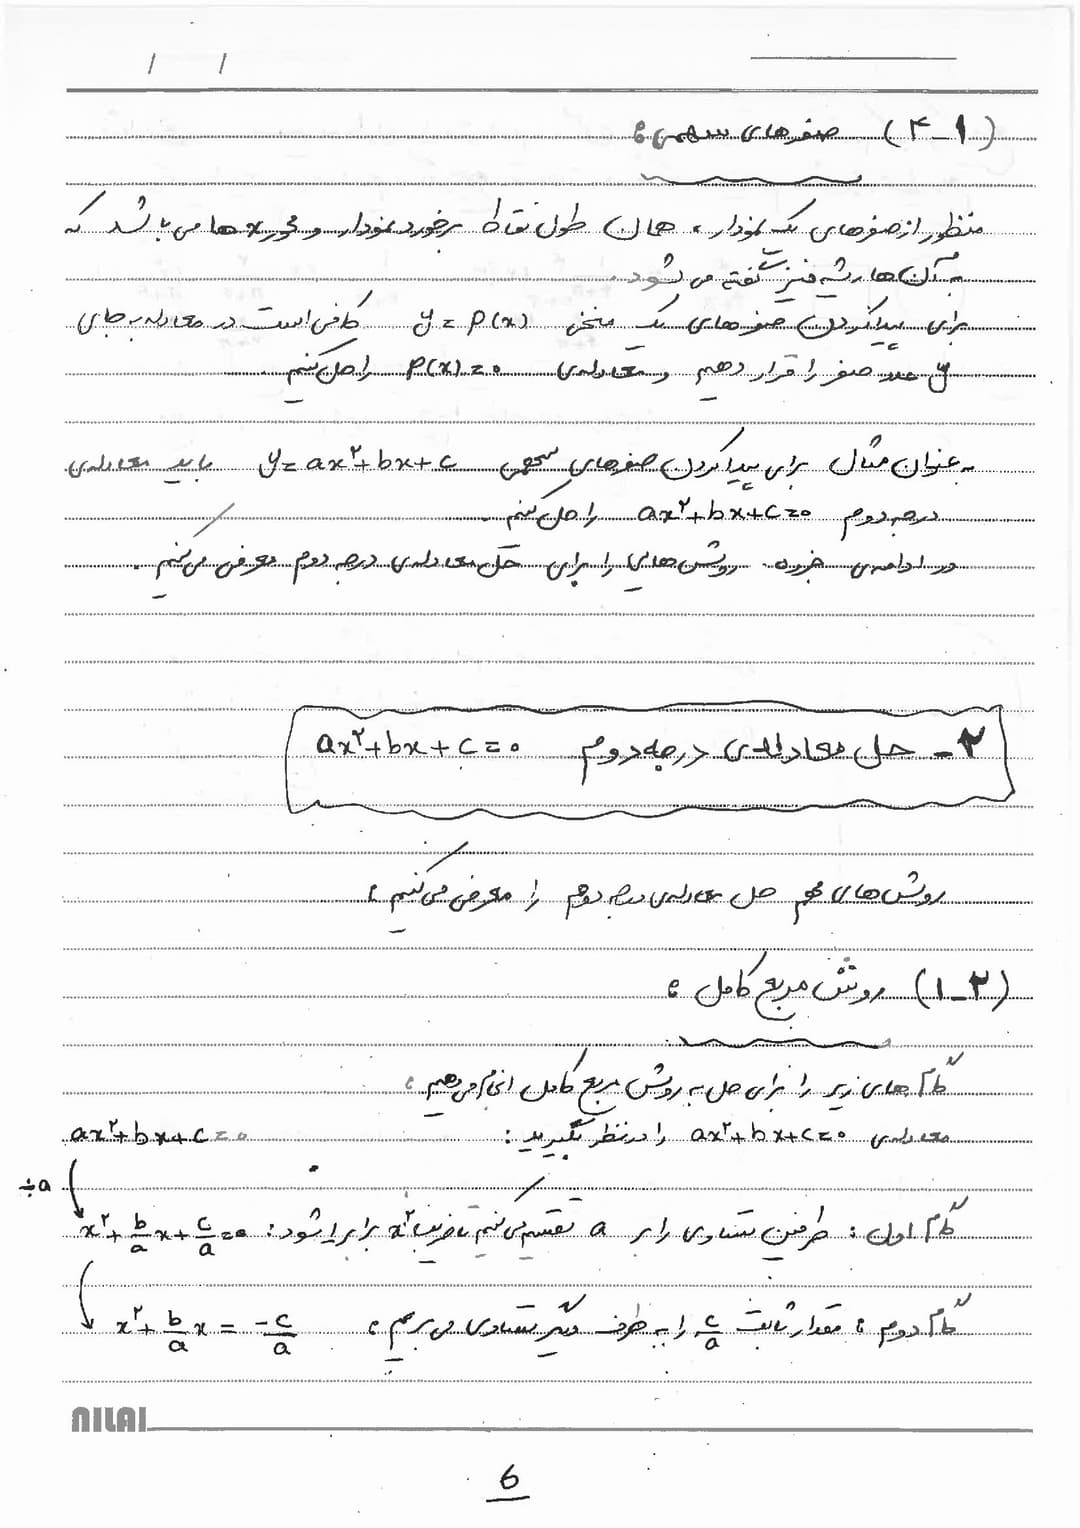 / /
(۴-۱) صفرهای سهمی :
منظور از صفرهای یک نمودار ، همان طول نقاط برخورد نمودار و محور xها می باشد که
به آن ها ریشه نیز گفته می شود .
برای پیدا کردن صفرهای یک منحنی y = P(x) کافی است در معادله به جای
y عدد صفر را قرار دهیم و معادله‌ی P(x)=۰ را حل کنیم .
به عنوان مثال برای پیدا کردن صفرهای سهمی y = ax²+bx+c باید معادله‌ی
درجه دوم ax²+bx+c=۰ را حل کنیم .
در ادامه‌ی جزوه روش هایی را برای حل معادله‌ی درجه دوم معرفی می کنیم .
۲- حل معادله‌ی درجه دوم ax²+bx+c=۰
روش های مهم حل معادله‌ی درجه دوم را معرفی می کنیم :
(۱-۲) روش مربع کامل :
گام های زیر را برای حل به روش مربع کامل انجام می دهیم :
معادله‌ی ax²+bx+c=۰ را در نظر بگیرید : ax²+bx+c=۰
÷a
گام اول : طرفین تساوی را بر a تقسیم می کنیم تا ضریب x² برابر ۱ شود : x²+b/a x+c/a=۰
گام دوم : مقدار ثابت c/a را به طرف دیگر تساوی می بریم : x²+b/a x = -c/a
NILAI
6